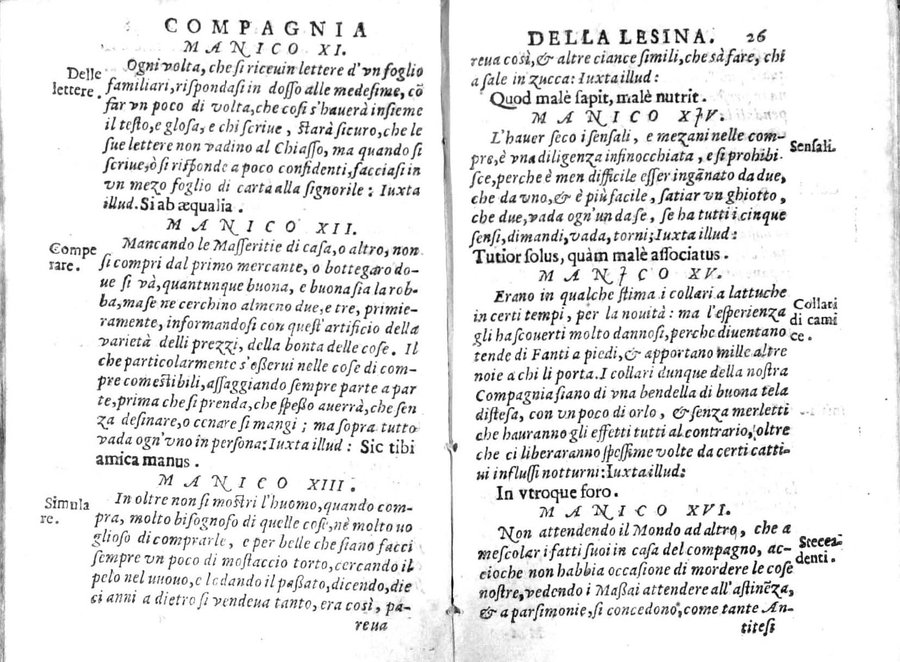 COMPAGNIA
MANICO XI.
Ogni volta, che si riceuin lettere d'vn foglio
familiari, rispondasi in dosso alle medesime, cō
far vn poco di volta, che cosi s'hauerà insieme
il testo, e glosa, e chi scriue, starà sicuro, che le
sue lettere non vadino al Chiasso, ma quando si
scriue, ò si risponde a poco confidenti, facciasi in
vn mezo foglio di carta alla signorile: Iuxta
illud. Si ab æqualia.
Delle
lettere.
MANICO XII.
Mancando le Masseritie di casa, o altro, non
si compri dal primo mercante, o bottegaro do-
ue si và, quantunque buona, e buona sia la rob-
ba, ma se ne cerchino almeno due, e tre, primie-
ramente, informandosi con quest'artificio della
varietà delli prezzi, della bonta delle cose. Il
che particolarmente s'osserui nelle cose di com-
pre comestibili, assaggiando sempre parte a par
te, prima che si prenda, che spesso auerrà, che sen
za desinare, o cenare si mangi; ma sopra tutto
vada ogn'vno in persona: Iuxta illud: Sic tibi
amica manus.
Compe
rare.
MANICO XIII.
In oltre non si mostri l'huomo, quando com-
pra, molto bisognoso di quelle cose, nè molto uo
glioso di comprarle, e per belle che siano facci
sempre vn poco di mostaccio torto, cercando il
pelo nel uuouo, e lodando il passato, dicendo, die
ci anni a dietro si vendeua tanto, era così, pa-
reua
Simula
re.
DELLA LESINA. 26
reua così, & altre ciance simili, che sà fare, chi
a sale in zucca: Iuxta illud:
Quod malè sapit, malè nutrit.
MANICO XIV.
L'hauer seco i sensali, e mezani nelle com-
pre, è vna diligenza infinocchiata, e si prohibi
sce, perche è men difficile esser ingānato da due,
che da vno, & è più facile, satiar vn ghiotto,
che due, vada ogn'un da se, se ha tutti i cinque
sensi, dimandi, vada, torni; Iuxta illud:
Tutior solus, quàm malè associatus.
Sensali.
MANICO XV.
Erano in qualche stima i collari a lattuche
in certi tempi, per la nouità: ma l'esperienza
gli ha scouerti molto dannosi, perche diuentano
tende di Fanti a piedi, & apportano mille altre
noie a chi li porta. I collari dunque della nostra
Compagnia siano di vna bendella di buona tela
distesa, con vn poco di orlo, & senza merletti
che hauranno gli effetti tutti al contrario, oltre
che ci liberaranno spessime volte da certi catti-
ui influssi notturni: Iuxta illud:
In vtroque foro.
Collari
di cami
ce.
MANICO XVI.
Non attendendo il Mondo ad altro, che a
mescolar i fatti suoi in casa del compagno, ac-
cioche non habbia occasione di mordere le cose
nostre, vedendo i Massai attendere all'astinēza,
& a parsimonie, si concedono, come tante An-
titesi
Steccadenti.